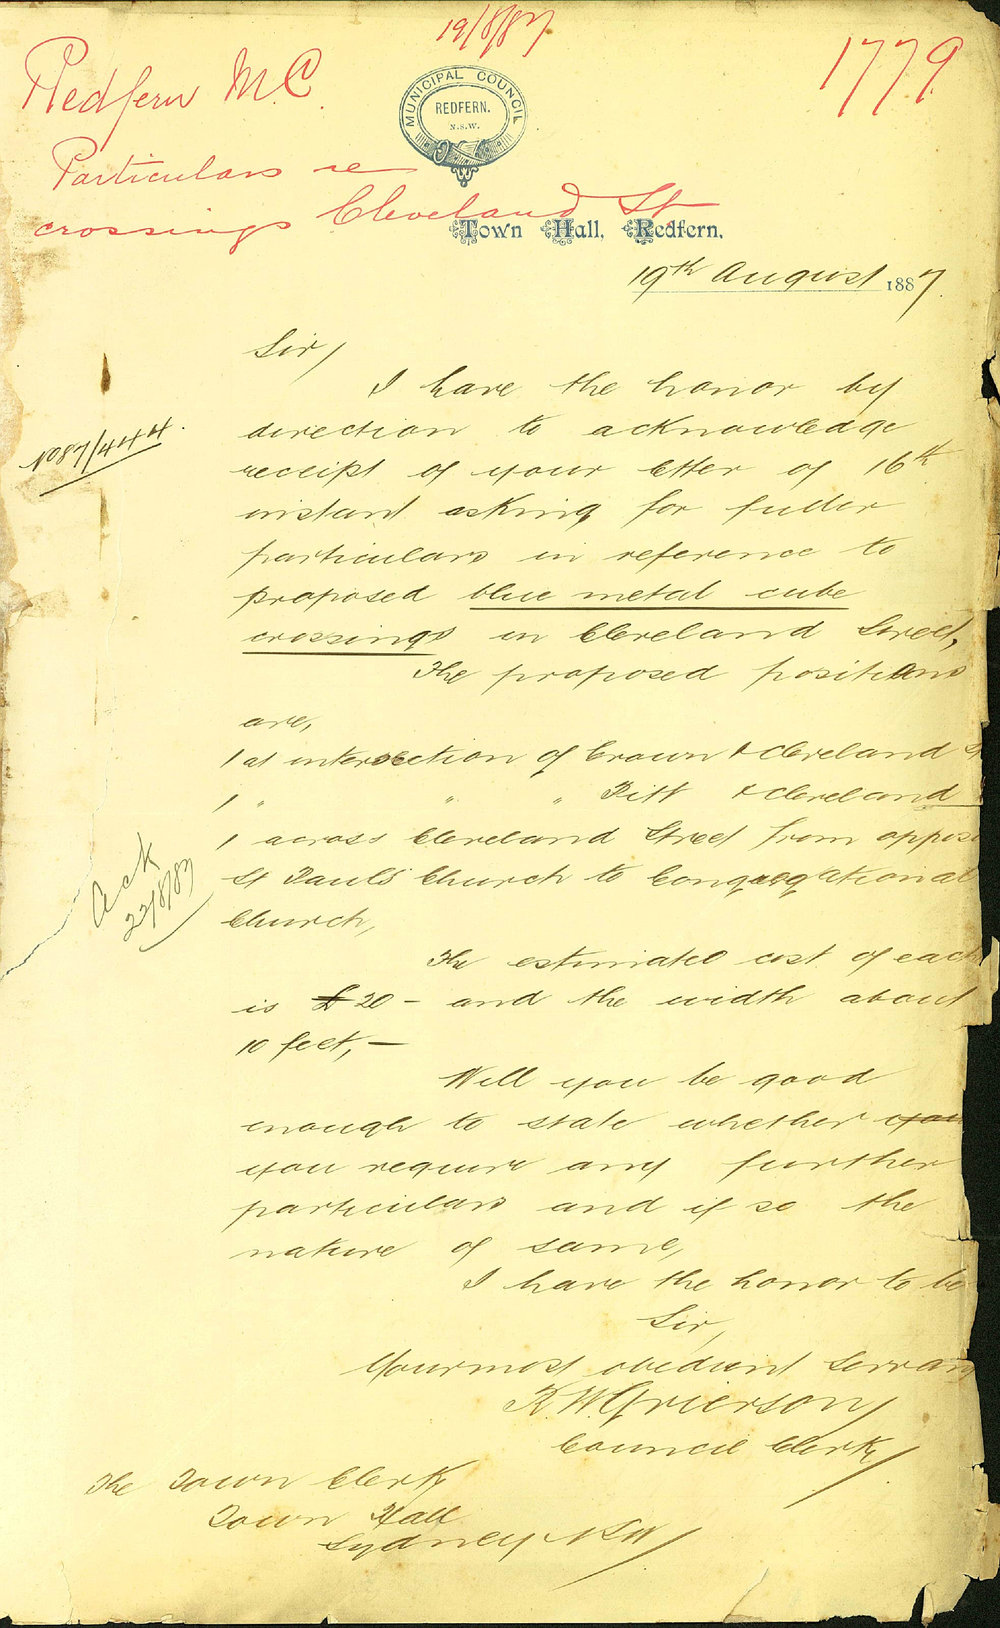 19/8/87
1779
Redfern M.C.
MUNICIPAL COUNCIL
REDFERN.
N.S.W.
Particulars re
crossings Cleveland St
Town Hall, Redfern.
19th August 1887.
Sir,
I have the honor by
direction to acknowledge
No 87/444.
receipt of your letter of 16th
instant asking for fuller
particulars in reference to
proposed blue metal cube
crossings in Cleveland Street,
The proposed positions
are,
1 at intersection of Crown & Cleveland
1 " " " Pitt & Cleveland
1 across Cleveland Street from opposi
St Pauls Church to Congregational
Church,
Ack
22/8/87
The estimated cost of each
is £20 - and the width about
10 feet, -
Will you be good
enough to state whether you
you require any further
particulars and if so the
nature of same,
I have the honor to be
Sir,
Your most obedient Servan
R.W. Grierson
Council Clerk
The Town Clerk
Town Hall
Sydney NSW